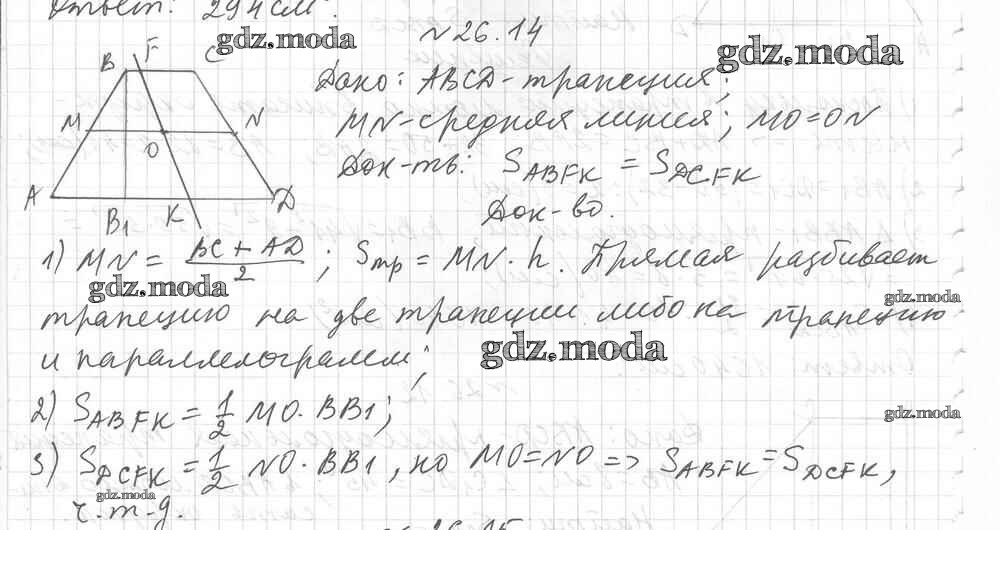 Ответ: 294 см².
N 26.14
Дано: ABCD-трапеция;
MN-средняя линия; MO=ON
Док-ть: S_ABFK = S_DCFK
Док-во.
B F C
M N
O
A B1 K D
1) MN = (BC + AD)/2 ; Sтр = MN · h. Прямая разбивает
трапецию на две трапеции либо на трапецию
и параллелограмм;
2) S_ABFK = 1/2 MO · BB1;
3) S_DCFK = 1/2 NO · BB1, но MO=NO => S_ABFK = S_DCFK,
ч.т.д.
N 26.15
gdz.moda
gdz.moda
gdz.moda
gdz.moda
gdz.moda
gdz.moda
gdz.moda